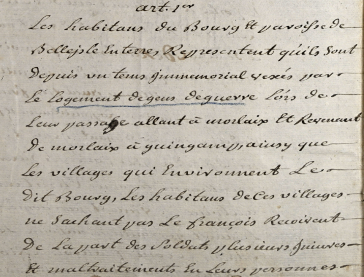 art. 1er
Les habitans du Bourg Et paroisse de
Belleisle Enterre Representent qu'ils Sont
Depuis un tems jmmemorial vexés par
Le Logement de gens de guerre Lors de
Leur passage allant à morlaix Et Revenant
de morlaix à guingamp, ainsy que
Les villages qui Environnent Le
dit Bourg, Les habitans de Ces villages
ne Sachant pas Le françois Recoivent
de La part des Soldats plusieurs jnjures
Et maltraitements En Leurs personnes